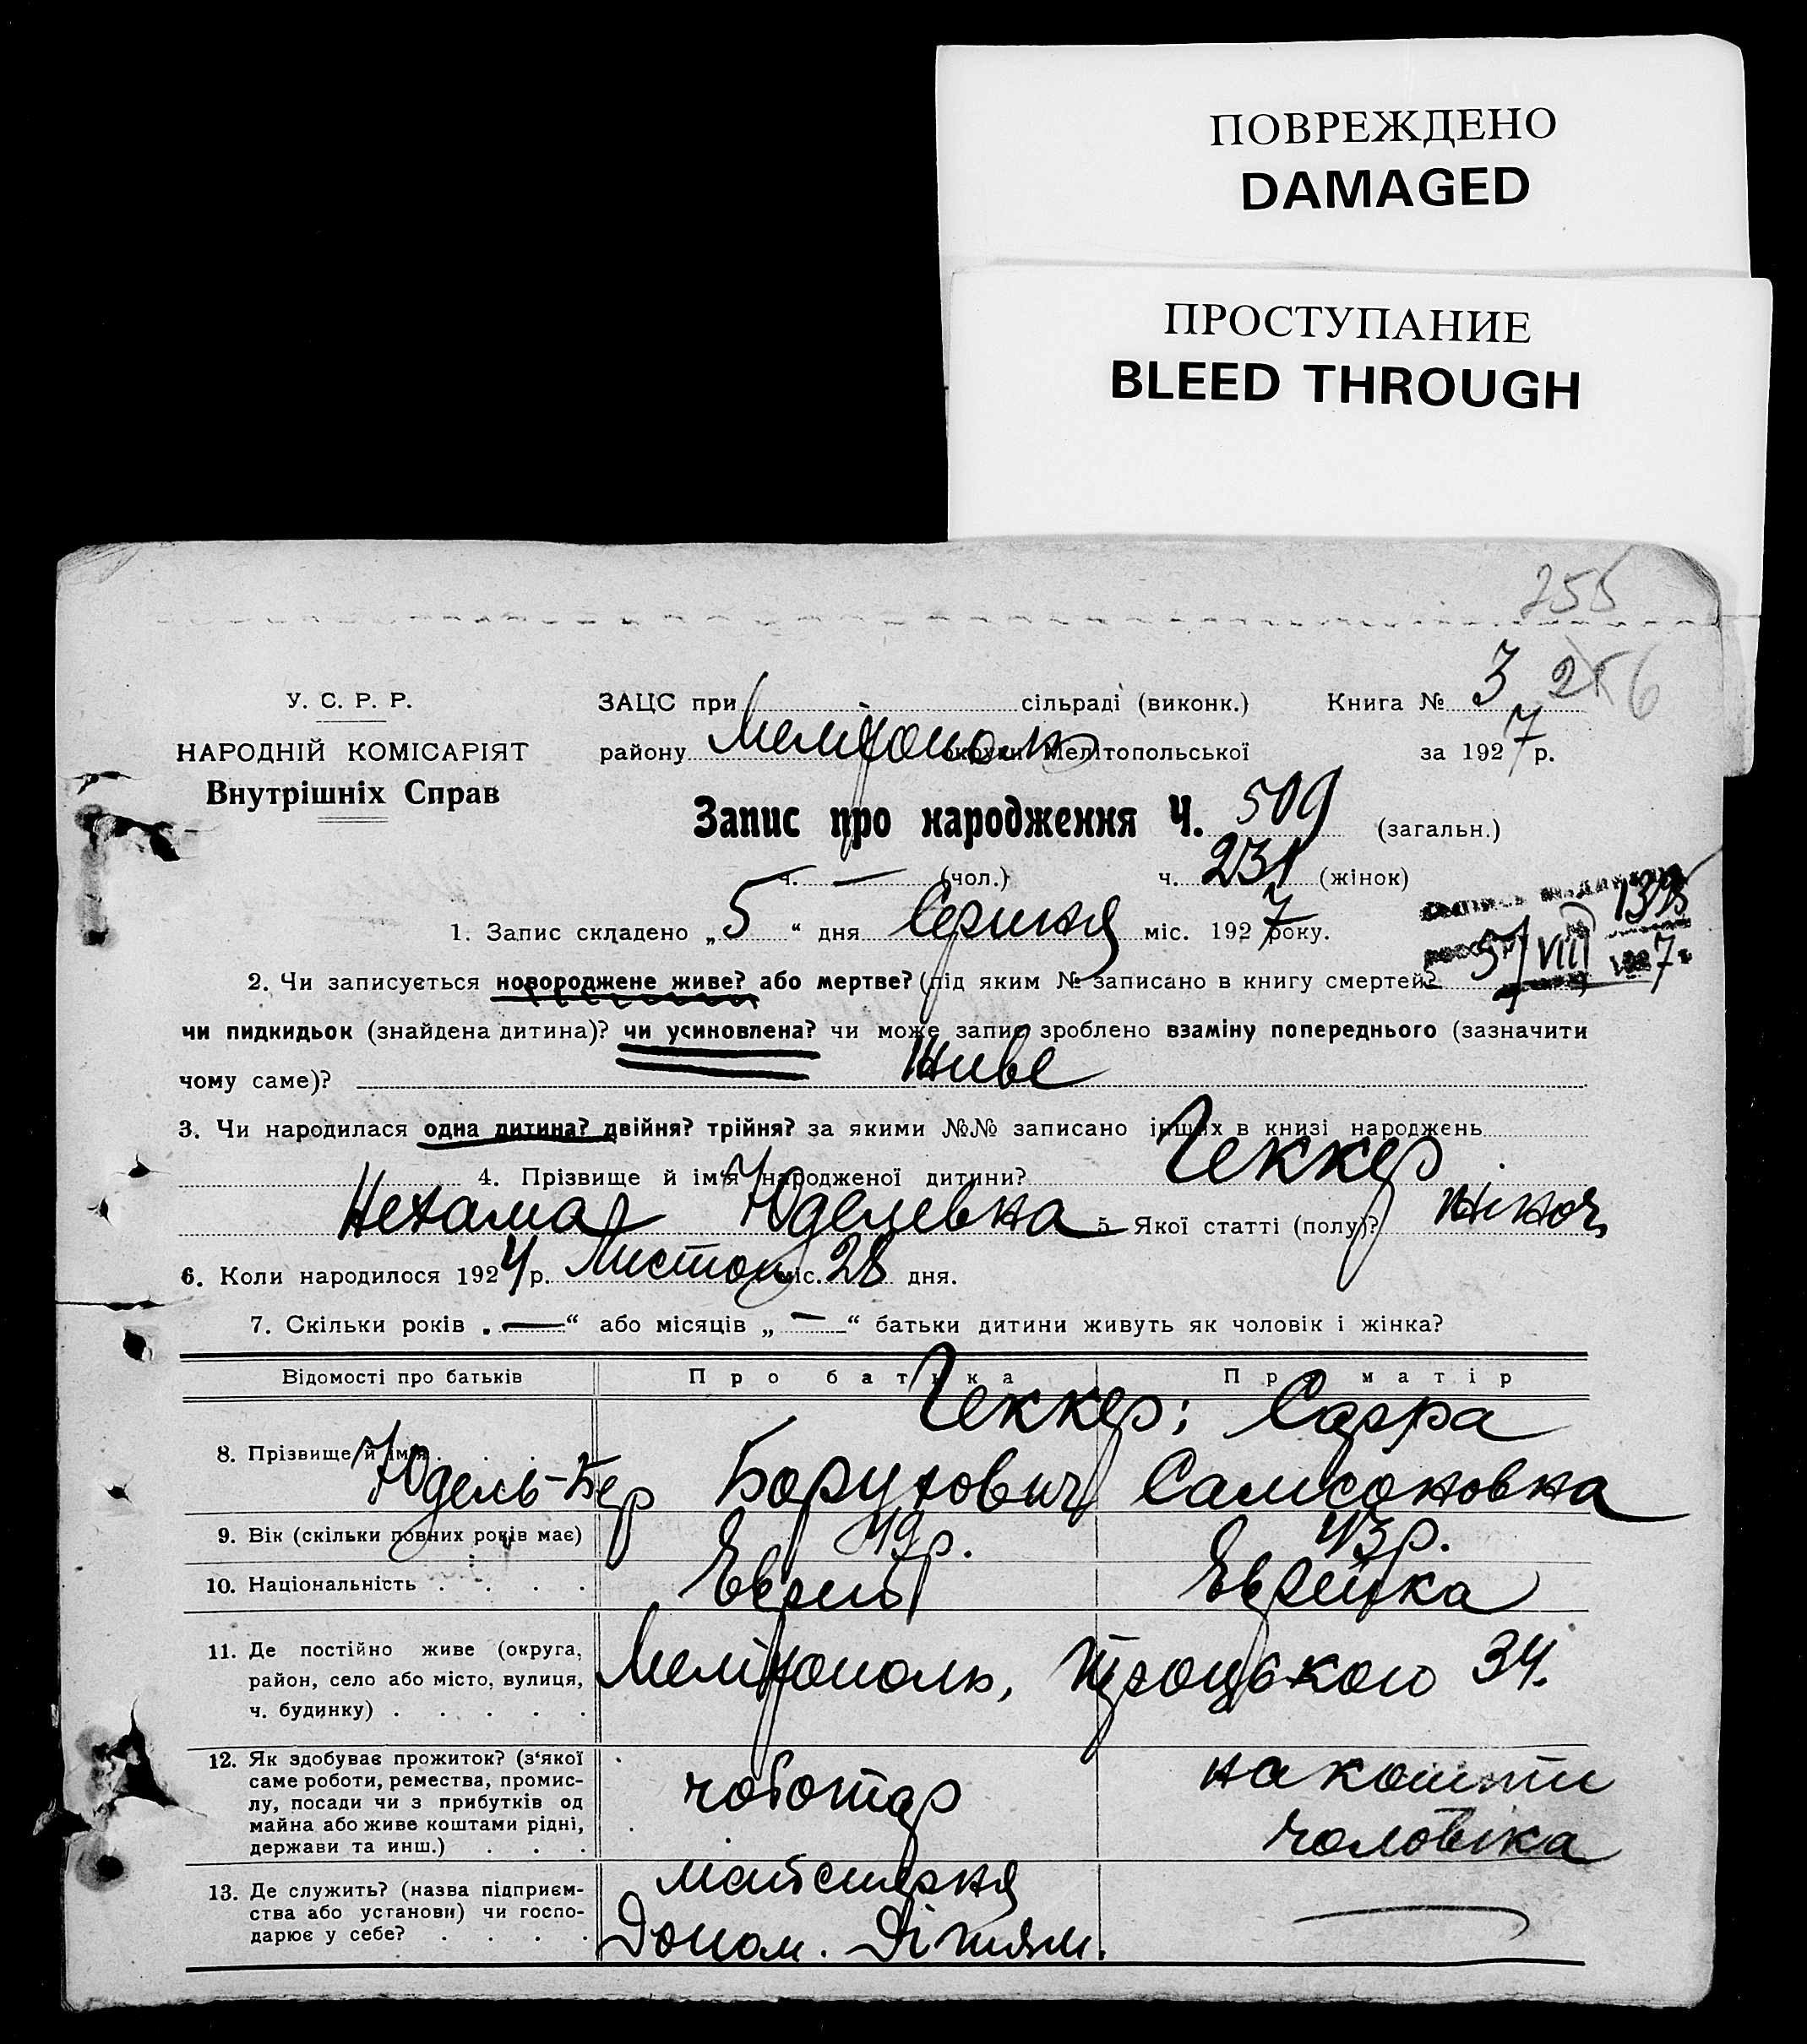 ПОВРЕЖДЕНО
DAMAGED
ПРОСТУПАНИЕ
BLEED THROUGH
255
У. С. Р. Р.
НАРОДНІЙ КОМІСАРІЯТ
Внутрішніх Справ
ЗАЦС при сільраді (виконк.) Книга № 3 256
району Мелітополь округи Мелітопольської за 1927 р.
Запис про народження Ч. 509 (загальн.)
ч. — (чол.) ч. 231 (жінок)
1. Запис складено „5“ дня Серпня міс. 1927 року.
139
5/VIII 7
2. Чи записується новороджене живе? або мертве? (під яким № записано в книгу смертей?
чи пидкидьок (знайдена дитина)? чи усиновлена? чи може запис зроблено взаміну попереднього (зазначити
чому саме)? Живе
3. Чи народилася одна дитина? двійня? трійня? за якими №№ записано інших в книзі народжень
4. Прізвище й ім'я народженої дитини? Геккер
Нехама Юделевна 5. Якої статті (полу)? жіноч
6. Коли народилося 1924 р. Листоп міс. 28 дня.
7. Скільки років „—“ або місяців „—“ батьки дитини живуть як чоловік і жінка?
Відомості про батьків Про батька Про матір
Геккер; Сарра
8. Прізвище й імя . . . .
Юдель-Бер Борухович Самсоновна
9. Вік (скільки повних років має) 49 р. 43 р.
10. Національність . . . . Еврей Еврейка
11. Де постійно живе (округа,
район, село або місто, вулиця, Мелітополь, Троцького 34.
ч. будинку) . . . . .
12. Як здобуває прожиток? (з'якої
саме роботи, ремества, промис-
лу, посади чи з прибутків од
майна або живе коштами рідні,
держави та инш.) . . .
чоботар на кошти
чоловіка
13. Де служить? (назва підприєм-
ства або установи) чи госпо-
дарює у себе? . . . .
майстерня
Допом. Дітям.